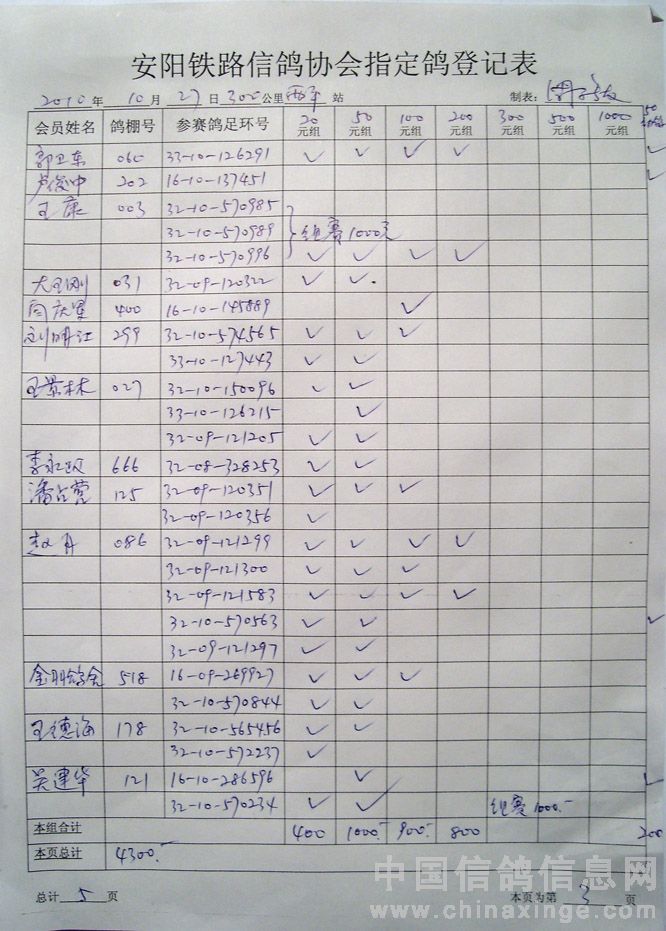 安阳铁路信鸽协会指定鸽登记表
2010年 10月 27日 300公里 站 制表:
会员姓名 鸽棚号 参赛鸽足环号 20元组 50元组 100元组 200元组 300元组 500元组 1000元组 50
郭卫东 060 33-10-126291 ✓ ✓ ✓ ✓ ✓
卢俊中 202 16-10-137451 ✓
王康 003 32-10-570985
32-10-570989 组赛1000元
32-10-570996 ✓ ✓ ✓ ✓
031 32-09-120322 ✓ ✓
闫庆 400 16-10-145889 ✓
刘明江 299 32-10-574565 ✓ ✓ ✓
33-10-127443 ✓ ✓
王景林 027 32-10-150096 ✓ ✓
33-10-126215 ✓
32-09-121205 ✓ ✓
李永 666 32-08-328253 ✓ ✓
潘占营 125 32-09-120351 ✓ ✓ ✓
32-09-120356 ✓
赵丹 086 32-09-121299 ✓ ✓ ✓ ✓
32-09-121300 ✓ ✓ ✓
32-09-121583 ✓ ✓ ✓ ✓
32-10-570563 ✓ ✓ ✓
32-09-121297 ✓ ✓
金羽鸽舍 518 16-09-269927 ✓ ✓ ✓
32-10-570844 ✓ ✓
王德海 178 32-10-565456 ✓ ✓
32-10-572237 ✓
吴建华 121 16-10-286596 ✓ ✓
32-10-570234 ✓ ✓ 组赛1000.-
本组合计 400 1000.- 900.- 800 200
本页总计 4300.-
总计 5 页 本页为第 3 页
中国信鸽信息网
www.chinaxinge.com